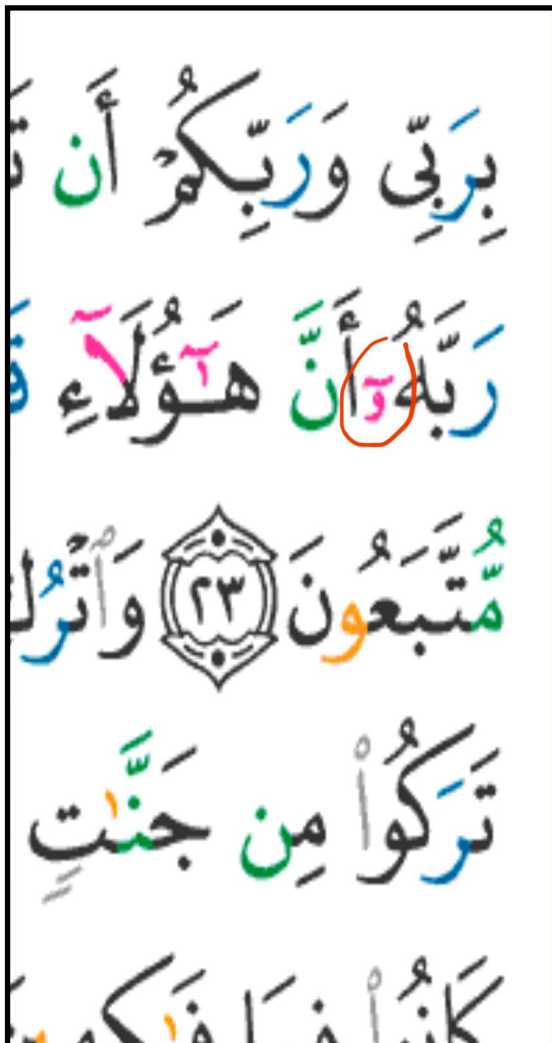 بِرَبِّى وَرَبِّكُمْ أَن
رَبَّهُۥٓ أَنَّ هَـٰٓؤُلَآءِ
مُّتَّبَعُونَ ٢٣ وَٱتْرُكِ
تَرَكُوا۟ مِن جَنَّـٰتٍ
كَانُوا۟ فِيهَا فَـٰكِهِينَ